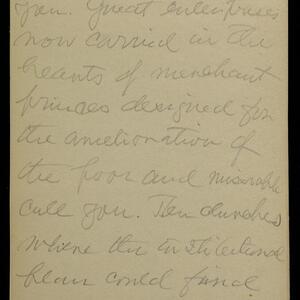 you. Great enterprises
now carried in the
hearts of merchant
princes designed for
the amelioration of
the poor and miserable
call you. Ten churches
where the institutional
plan could find